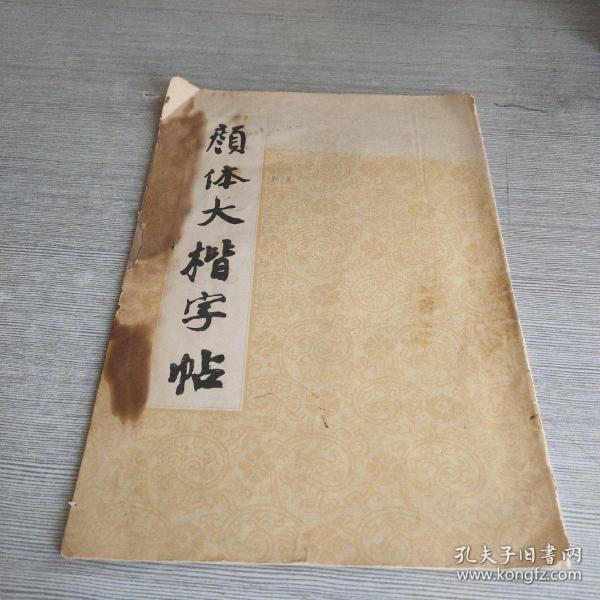 颜体大楷字帖
孔夫子旧書网
www.kongfz.com